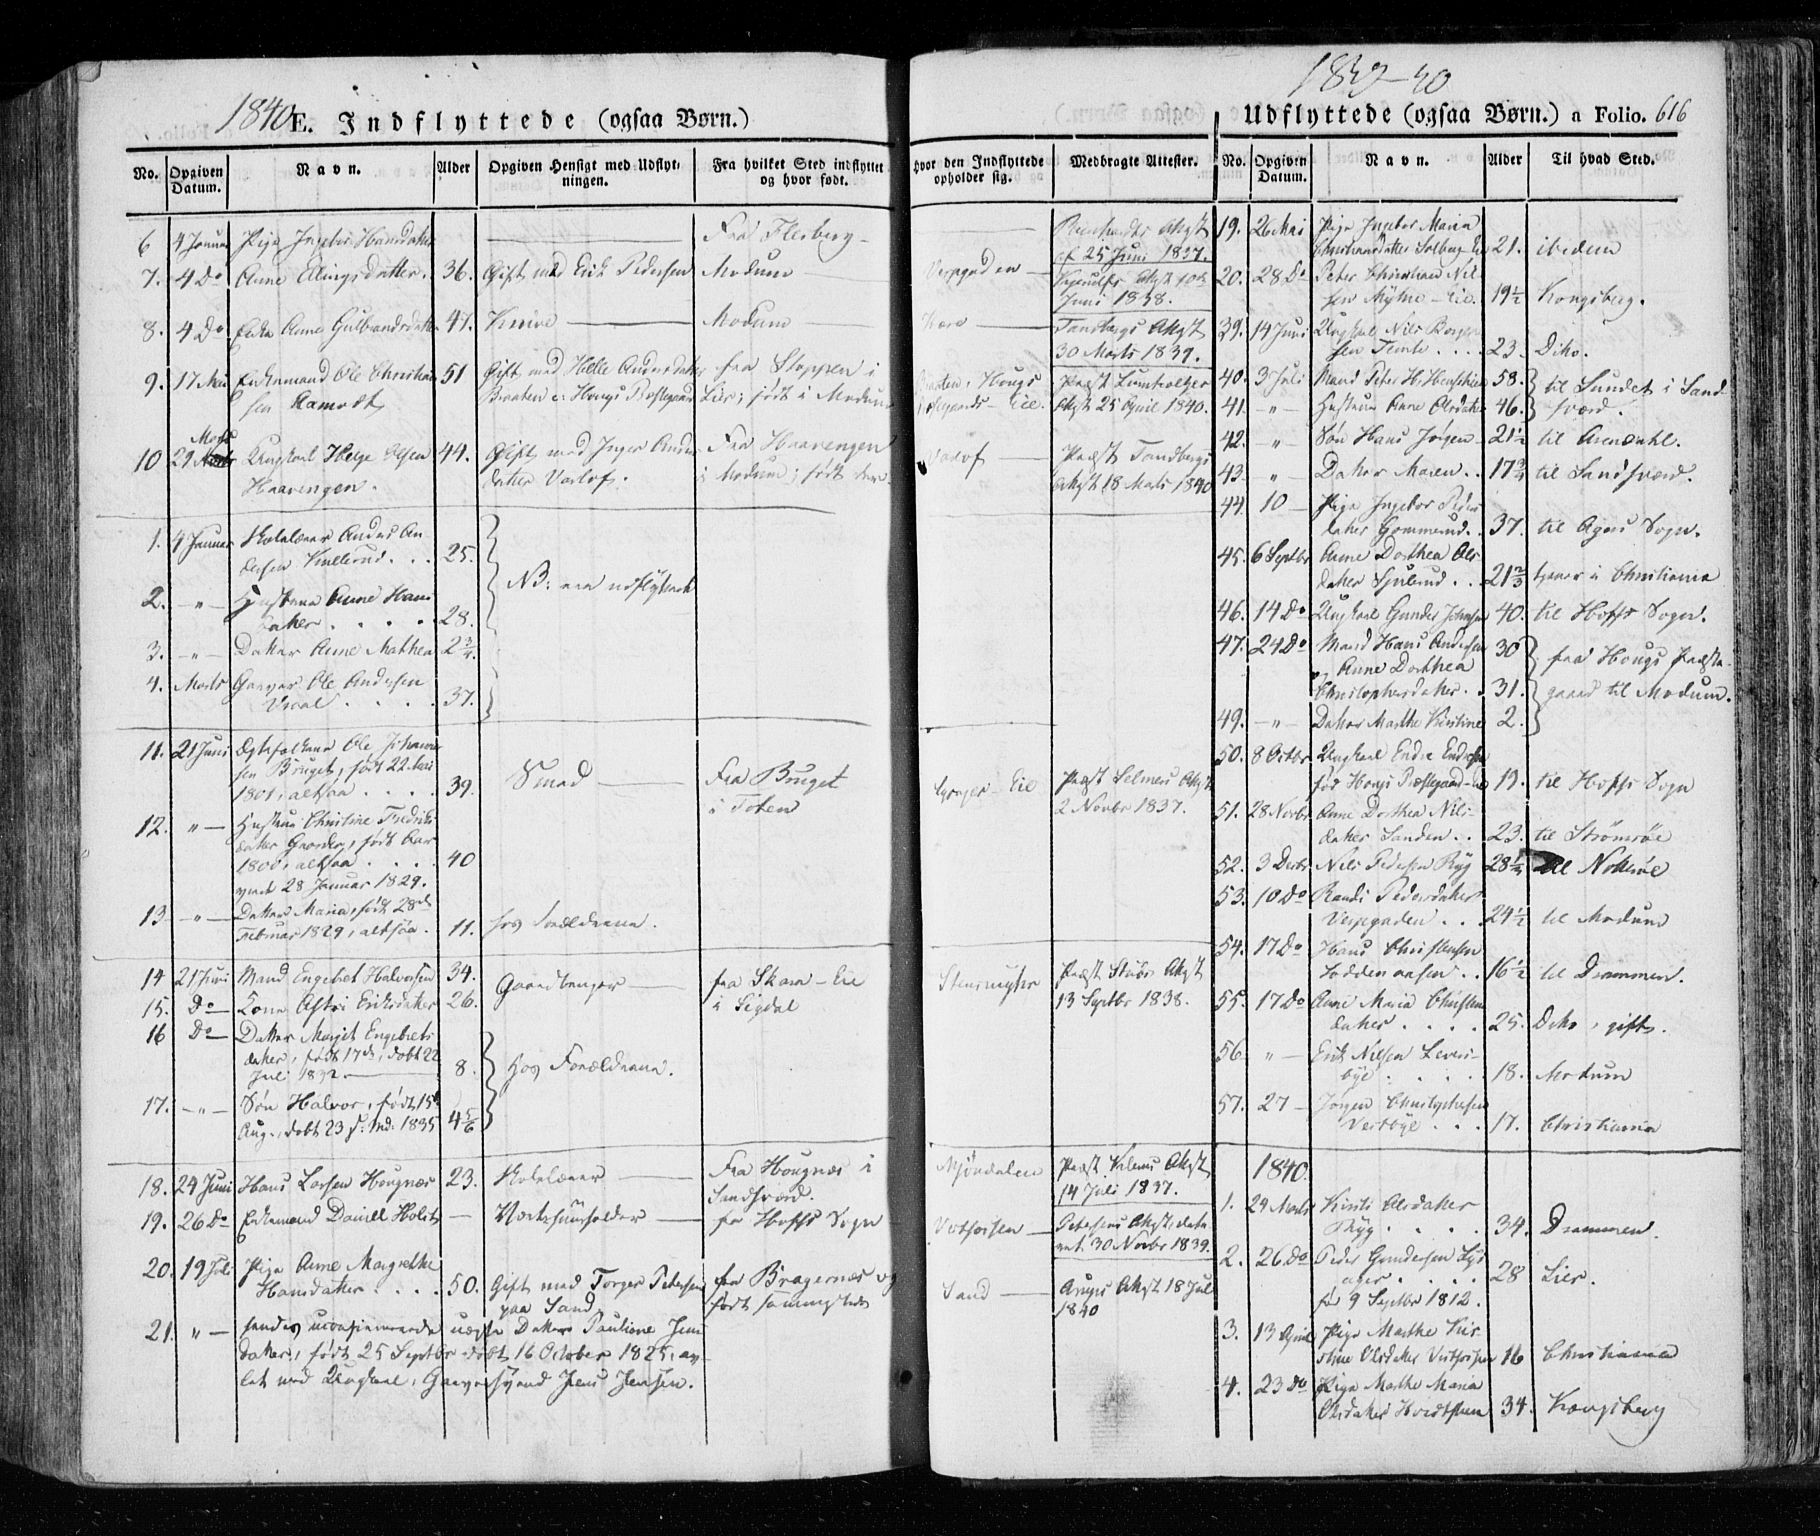 1840
E. Indflyttede (ogsaa Børn.)
No. Opgiven Datum. Navn. Alder Opgiven Hensigt med Udflytningen. Fra hvilket Sted indflyttet og hvor født.
6 4 Januar Pige Ingebor Hansdatter Fra Flesberg
7. 4 Do Anne Ellingsdatter. 36. Gift med Erik Pedersen Modum
8. 4 Do Enke Anne Gulbrandsdatter 47. Modum
9. 17 Mai Enkemand Ole Christian 51 Gift med Helle Andersdatter fra Stoppen i
sen Ramodt Braaten u. Hougs Præstegaard Lier; født i Modum
10 29 Marts Ungkarl Helge Olsen 44. Gift med Inger Anders Fra Haavengen
Haavengen. datter Varlof. i Modum; født der
1. 4 Januar Skolelærer Anders An
dersen . . . 25.
NB: ere udflyttede
2. -"- Hustrue Anne Hans
datter . . . . 28.
3. -"- Datter Anne Mathea 2 3/4
4. Marts Garver Ole Andersen
. . . . 37.
11. 21 Juni Egtefolkene Ole Johanne
sen Bruget, født 22
1801, altsaa . . . . 39. Smed Fra Bruget
i Toten
12. "- Hustrue Christine Fredriks
datter født Aar
1800, altsaa . . . . 40
28 Januar 1829.
13 -"- Datter Maria, født 28de
Februar 1829, altsaa . 11. hos Forældrene.
14 21 Juni Mand Engebret Halvorsen 34. Gaardbruger fra Skare-Eie
15. Do Kone Astri Eriksdatter 26. i Sigdal
16 Do Datter Margit Engebrets
datter, født 17de, døbt 22
Juli 1832 8. hos Forældrene.
17. -"- Søn Halvor, født 15de
Aug., døbt 23 s: Md: 1835 4 5/6
18. 24 Juni Hans Larsen Hougnæs 23. Skolelærer Fra Hougnæs i
Sandsværd.
19. 26 Do Enkemand Daniell Holst Værtshuusholder fra Hoffs Sogn
20. 19 Juli Pige Anne Margrethe
Hansdatter . . . . 50. Gift med Torger Pedersen fra Bragernæs og
paa Sand. født sammesteds
21. "- hendes uconfirmerede uægte Datter Pauline Jens
datter, født 25 Septbr døbt 16 October 1825, av
let med Ungkarl, Garversvend Jens Jensen.
1839-40
Udflyttede (ogsaa Børn.) a Folio. 616
Hvor den Indflyttede opholder sig. Medbragte Attester. No. Opgiven Datum. Navn. Alder Til hvad Sted.
Attest
af 25 Juni 1837.
Attest
Juni 1838.
Tandbergs Attest
30 Marts 1839.
Braaten, Hougs Præst Lumholtzes
Præstegaards-Eie. Attest 25 April 1840.
Varlof Præst Tandbergs
Attest 18 Marts 1840
Præst Selmers Attest
2 Novbr 1837.
Præst Attest
13 Septbr 1838.
Mjøndalen Præst Attest
14 Juli 1837.
Vestfossen Petersens Attest, date
ret. 30 Novbr 1839.
Sand Arups Attest 18 Juli
1840
19. 26 Mai Pige Ingebor Maria
Christiansdatter Solberg Eie 21. ibidem
20. 28 Do Peter Christian Nil
sen Myhre-Eie. 19 1/2 Kongsberg.
39. 14 Juni Ungkarl Nils Borger
sen . . . . 23. Dito.
40. 3 Juli Mand Peter H. 58. til Sundet i Sand
41. -"- Hustrue Anne Olsdatter 46. sværd.
42. " Søn Hans Jørgen 21 1/2 til Arendahl.
43 -"- Datter Maren . . 17 3/4 til Sandsværd.
44. 10 - Pige Ingebor Peders
datter Gommerud . . 37. til Agers Sogn.
45. 6 Septbr Anne Dorthea Ols
datter . . 21 2/3 tjener i Christiania
46. 14 Do Ungkarl Gunder Johnsen 40. til Hoffs Sogn.
47. 24 Do Mand Hans Andersen 30 fra Hougs Præste-
og Anne Dorthea
Christophersdatter . . 31. gaard til Modum.
49. -"- Datter Marthe Kirstine 2.
50. 8 Octbr Ungkarl Endre Endresen
fra Hougs Præstegaard-Eie 19. til Hoffs Sogn
51. 28 Novbr. Anne Dorthea Nils-
datter Sanden . . 23. til Strømsøe
52. 3 Decbr Nils Pedersen Ryg 28 1/4 til
53. 10 Do Randi Pedersdatter
. . 24 1/2 til Modum
54. 17 Do Hans Christensen
Loddenaasen . . 16 1/2 til Drammen.
55. 17 Do Anne Maria Christens
datter . . . . 25. Dito, gift.
56. -"- Erik Nilsen
. . . . 18. Modum
57. 27 - Jørgen Christophersen
. . . 17. Christiania
1840.
1. 24 Marts Kirsti Olsdatter
Ryg . . . . 34. Drammen.
2. 26 Do Peder Gundersen
. . . . 28 Lier.
født 9 Septbr 1812.
3. 13 April Pige Marthe Kir
stine Olsdatter Vestfossen 16 Christiania
4. 23 Do Pige Marthe Maria
Olsdatter 34. Kongsberg